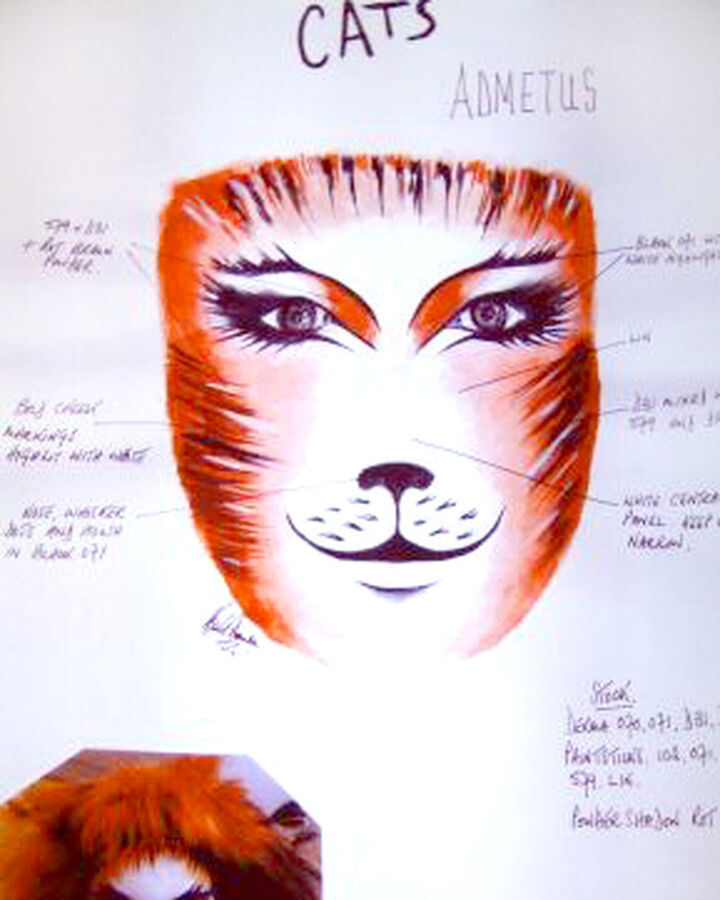 CATS
ADMETUS
579 + D31
+ ROT BRAUN
POWDER.
BLACK 071
WHITE
LW
BOLD CHEEK
MARKINGS
HIGHLIGHT WITH WHITE
D31 MIXED
579 AND
NOSE, WHISKER
DOTS AND MOUTH
IN BLACK 071
WHITE CENTER
PANEL KEEP
NARROW.
STOCK.
DERMA 070, 071, D31,
PAINTSTICKS, 102, 071,
579, LW.
POWDER SHADOW ROT